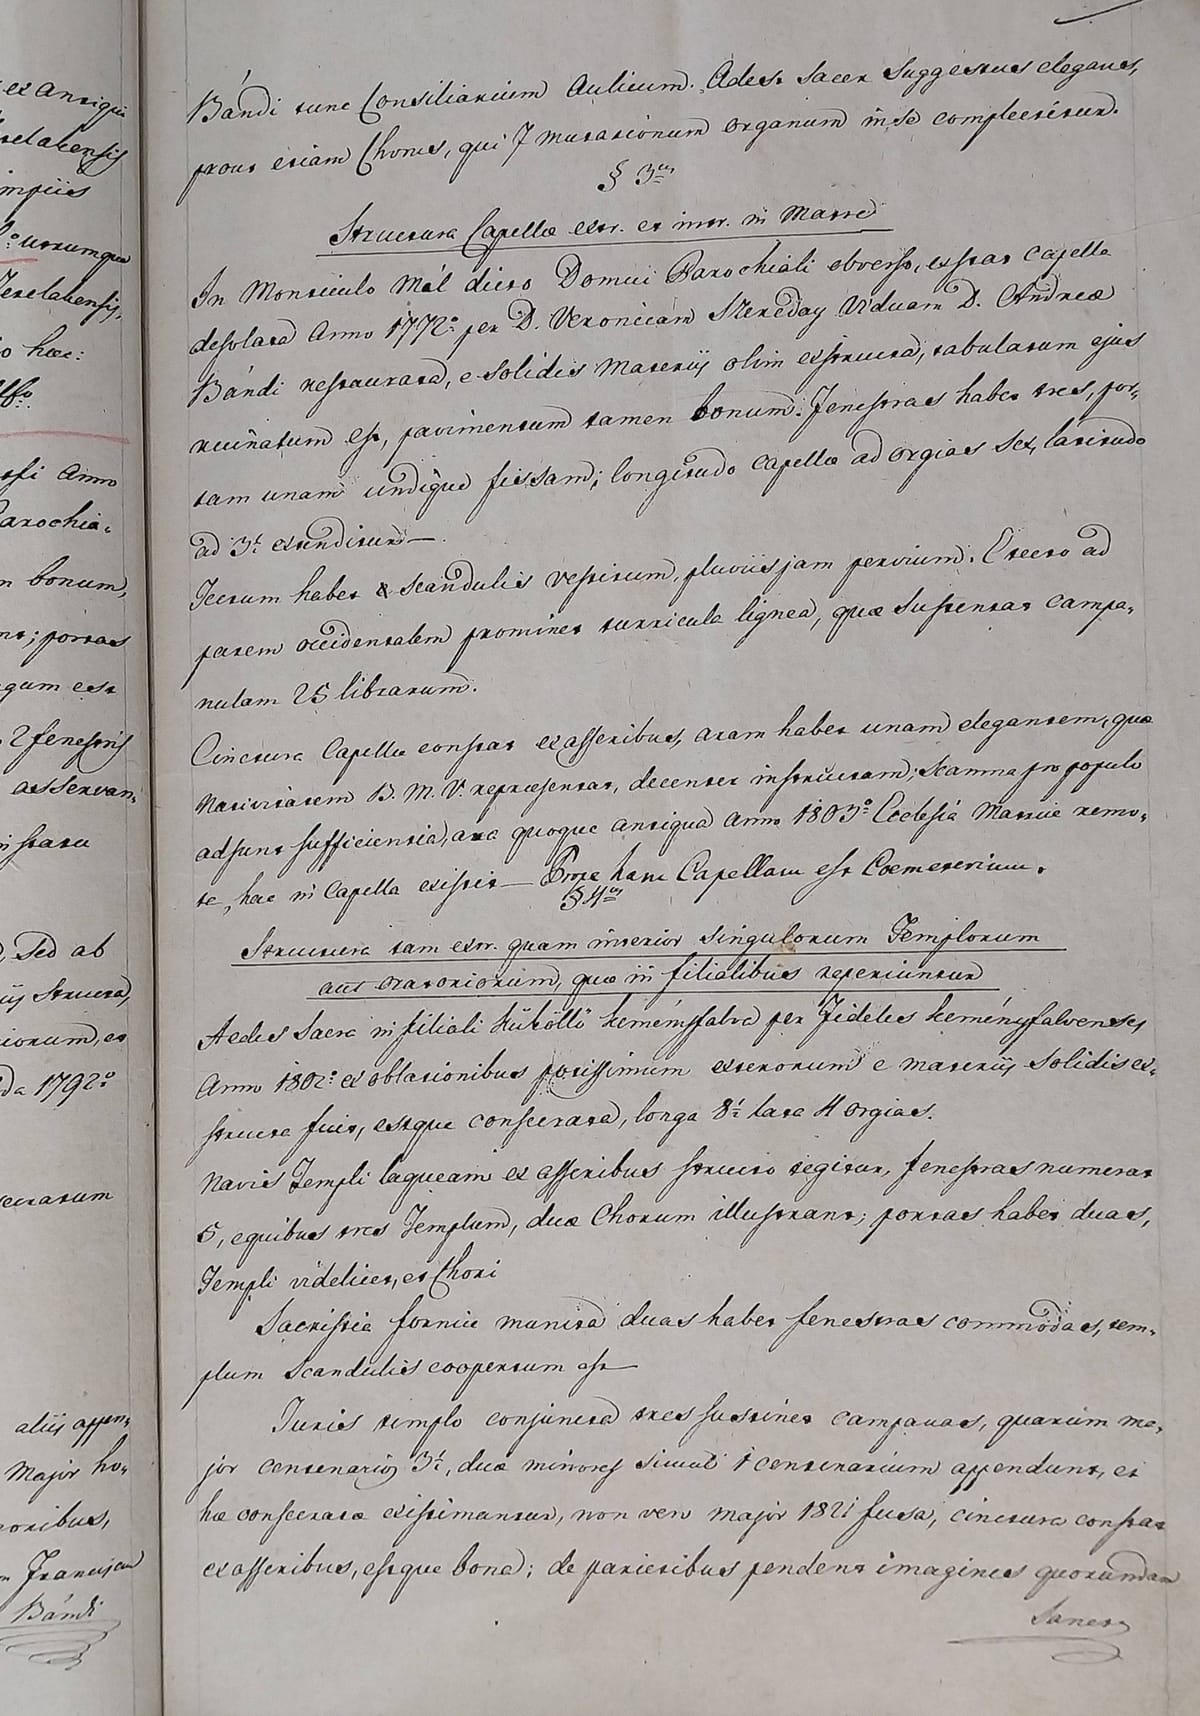 ex Antiqui
Bándi tunc Consiliarium Aulicum. Adest sacer suggestus elegans,
prout etiam Chorus, qui 7 mutationum organum in se complectitur.
§ 3us
Structura Capellæ extr. et intr. in Matre
In Monticulo Mál dicto Domui Parochiali obverso, exstat capella
desolata Anno 1772o per D. Veronicam Szereday Viduam D. Andreæ
Bándi restaurata, e solidis materiis olim exstructa, tabulatum ejus
ruinatum est, pavimentum tamen bonum. Fenestras habet tres, por-
tam unam undique fissam; longitudo capellæ ad orgias sex, latitudo
ad 3½ extenditur —.
Tectum habet scandulis vestitum, pluviis jam pervium. E tecto ad
partem occidentalem prominet turricula lignea, quæ sustentat campa-
nulam 25 librarum.
Cinctura Capellæ constat ex asseribus, aram habet unam elegantem, quæ
Nativitatem B. M. V. repræsentat, decenter instructam; scamna pro populo
adsunt sufficientia, ara quoque antiqua Anno 1803o Ecclesiæ Matris remo-
te, hac in Capella existit — Prope hanc Capellam est Coemeterium.
§ 4us
Structura tam extr. quam interior singulorum Templorum
aut oratoriorum, quæ in filialibus reperiuntur
Aedes Sacra in filiali Küküllő Keményfalva per Fideles Keményfalvenses
Anno 1802o ex oblationibus potissimum externorum e materiis solidis ex-
structa fuit, estque consecrata, longa 8½ lata 4 orgias.
Navis Templi laqueari ex asseribus structo tegitur, fenestras numerat
5, e quibus tres Templum, duæ Chorum illustrant; portas habet duas,
Templi videlicet, et Chori
Sacristia fornice munita duas habet fenestras commodas, tem-
plum scandulis coopertum est —
Turris templo conjuncta tres sustinet campanas, quarum ma-
jor centenarios 3½, duæ minores simul 1 centenarium appendunt, et
hæ consecratæ existimantur, non vero major 1821 fusa, cinctura constat
ex asseribus, estque bona; de parietibus pendent imagines quorundam
Sanct